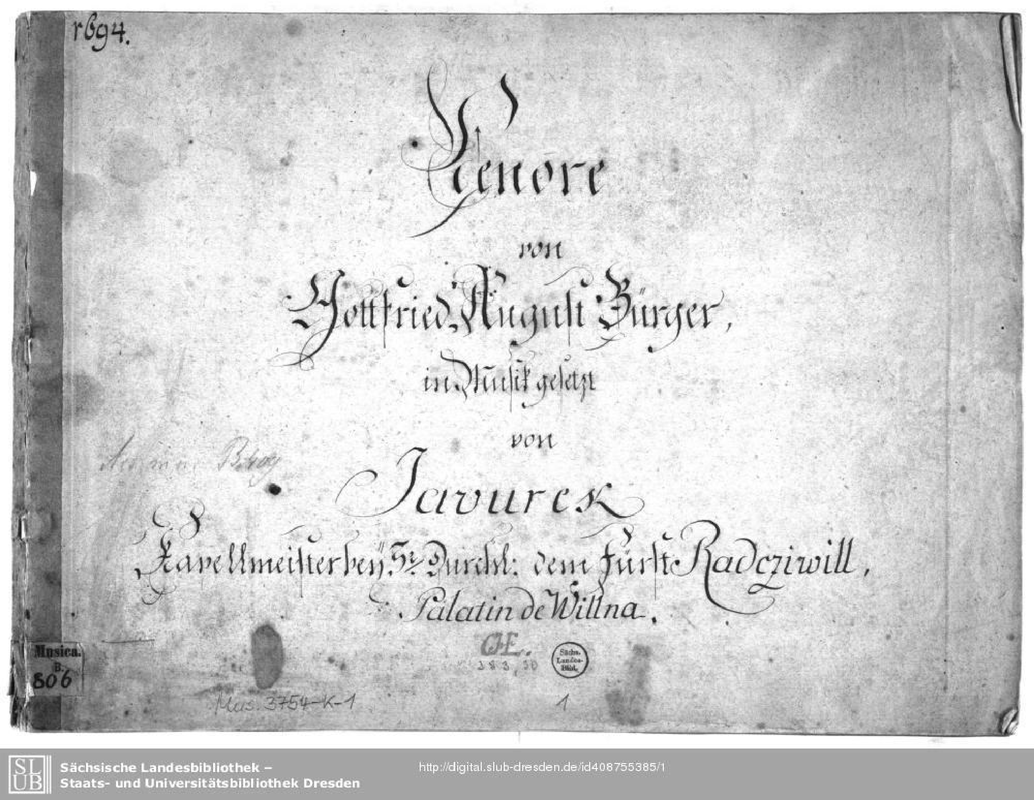 r694.
Lenore
von
Gottfried August Bürger,
in Musik gesetzt
von
Javurek
Kapellmeister bey Sr. Durchl: dem Fürst Radcziwill,
Palatin de Willna.
Musica.
B.
806
383, 50
Sächs.
Landes-
Bibl.
Mus. 3754-K-1
1
SLUB
Sächsische Landesbibliothek –
Staats- und Universitätsbibliothek Dresden
http://digital.slub-dresden.de/id408755385/1